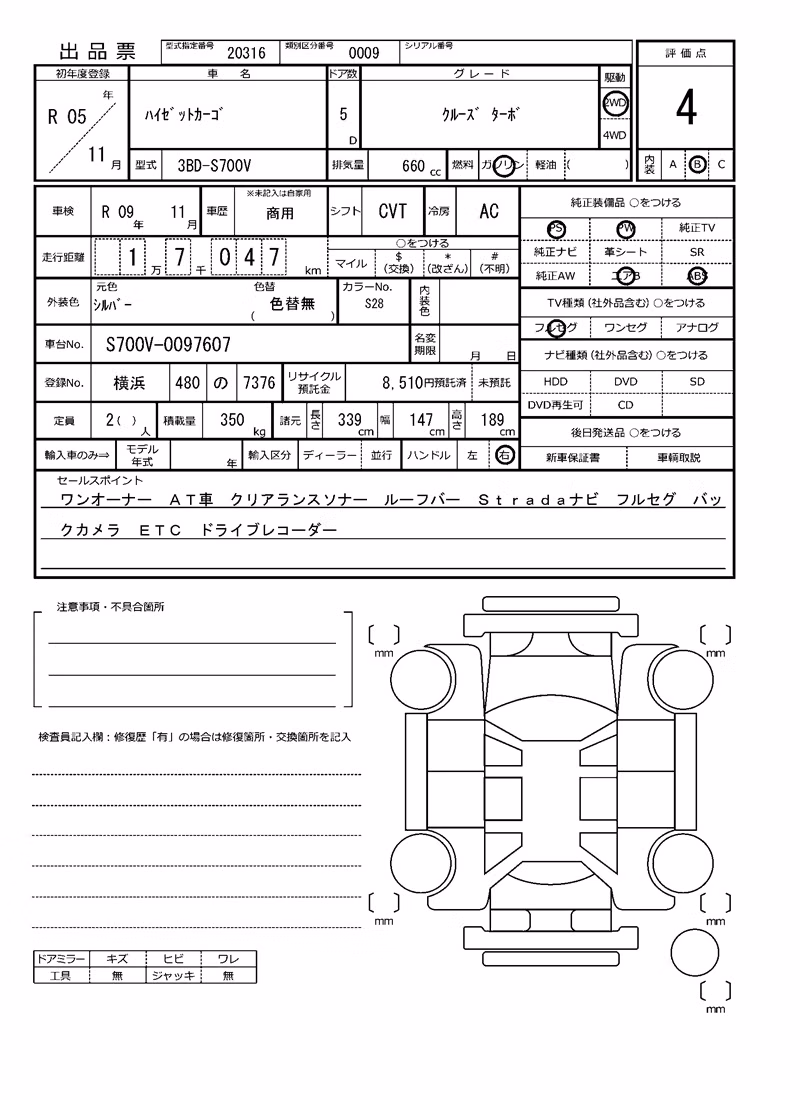 出品票 型式指定番号 20316 類別区分番号 0009 シリアル番号 評価点
初年度登録 車名 ドア数 グレード 駆動
R 05 年 11 月 ﾊｲｾﾞｯﾄｶｰｺﾞ 5 D ｸﾙｰｽﾞ ﾀｰﾎﾞ 2WD 4WD 4
型式 3BD-S700V 排気量 660 cc 燃料 ガソリン 軽油 ( ) 内装 A B C
車検 R 09 年 11 月 車歴 ※未記入は自家用 商用 シフト CVT 冷房 AC 純正装備品 ○をつける
PS PW 純正TV
走行距離 1 万 7 千 0 4 7 km ○をつける マイル $ (交換) * (改ざん) # (不明)
純正ナビ 革シート SR
純正AW エアB ABS
外装色 元色 ｼﾙﾊﾞｰ 色替 ( 色替無 ) カラーNo. S28 内装色
TV種類 (社外品含む) ○をつける
フルセグ ワンセグ アナログ
車台No. S700V-0097607 名変期限 月 日
ナビ種類 (社外品含む) ○をつける
登録No. 横浜 480 の 7376 リサイクル預託金 8,510円預託済 未預託
HDD DVD SD
DVD再生可 CD
定員 2( ) 人 積載量 350 kg 諸元 長さ 339 cm 幅 147 cm 高さ 189 cm
後日発送品 ○をつける
輸入車のみ⇒ モデル年式 年 輸入区分 ディーラー 並行 ハンドル 左 右 新車保証書 車輌取説
セールスポイント
ワンオーナー ＡＴ車 クリアランスソナー ルーフバー Ｓｔｒａｄａナビ フルセグ バッ
クカメラ ＥＴＣ ドライブレコーダー
注意事項・不具合箇所
mm mm
検査員記入欄：修復歴「有」の場合は修復箇所・交換箇所を記入
mm mm
ドアミラー キズ ヒビ ワレ
工具 無 ジャッキ 無
mm